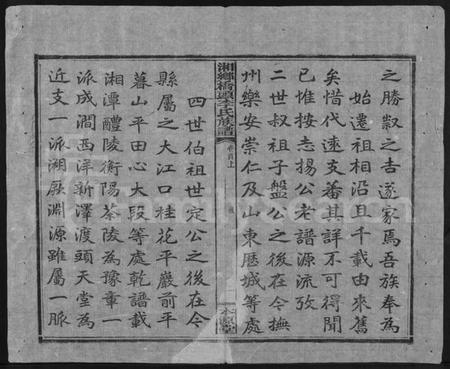 之勝叙之古遂家焉吾族奉為
始遷祖相沿且千載由來舊
矣惜代遠支蕃其詳不可得聞
已惟按志揚公老譜源流攷
二世叔祖子盤公之後在今撫
州樂安崇仁及山東歷城等處
湘鄉橋頭李氏族譜
卷首上
四世伯祖世定公之後在今
縣屬之大江口桂花平嚴前平
暮山平田心大段等處乾譜載
湘潭醴陵衡陽茶陵為豫章一
派成澗西洋新澤渡頭天堂為
近支一派溯厥淵源雖屬一脈